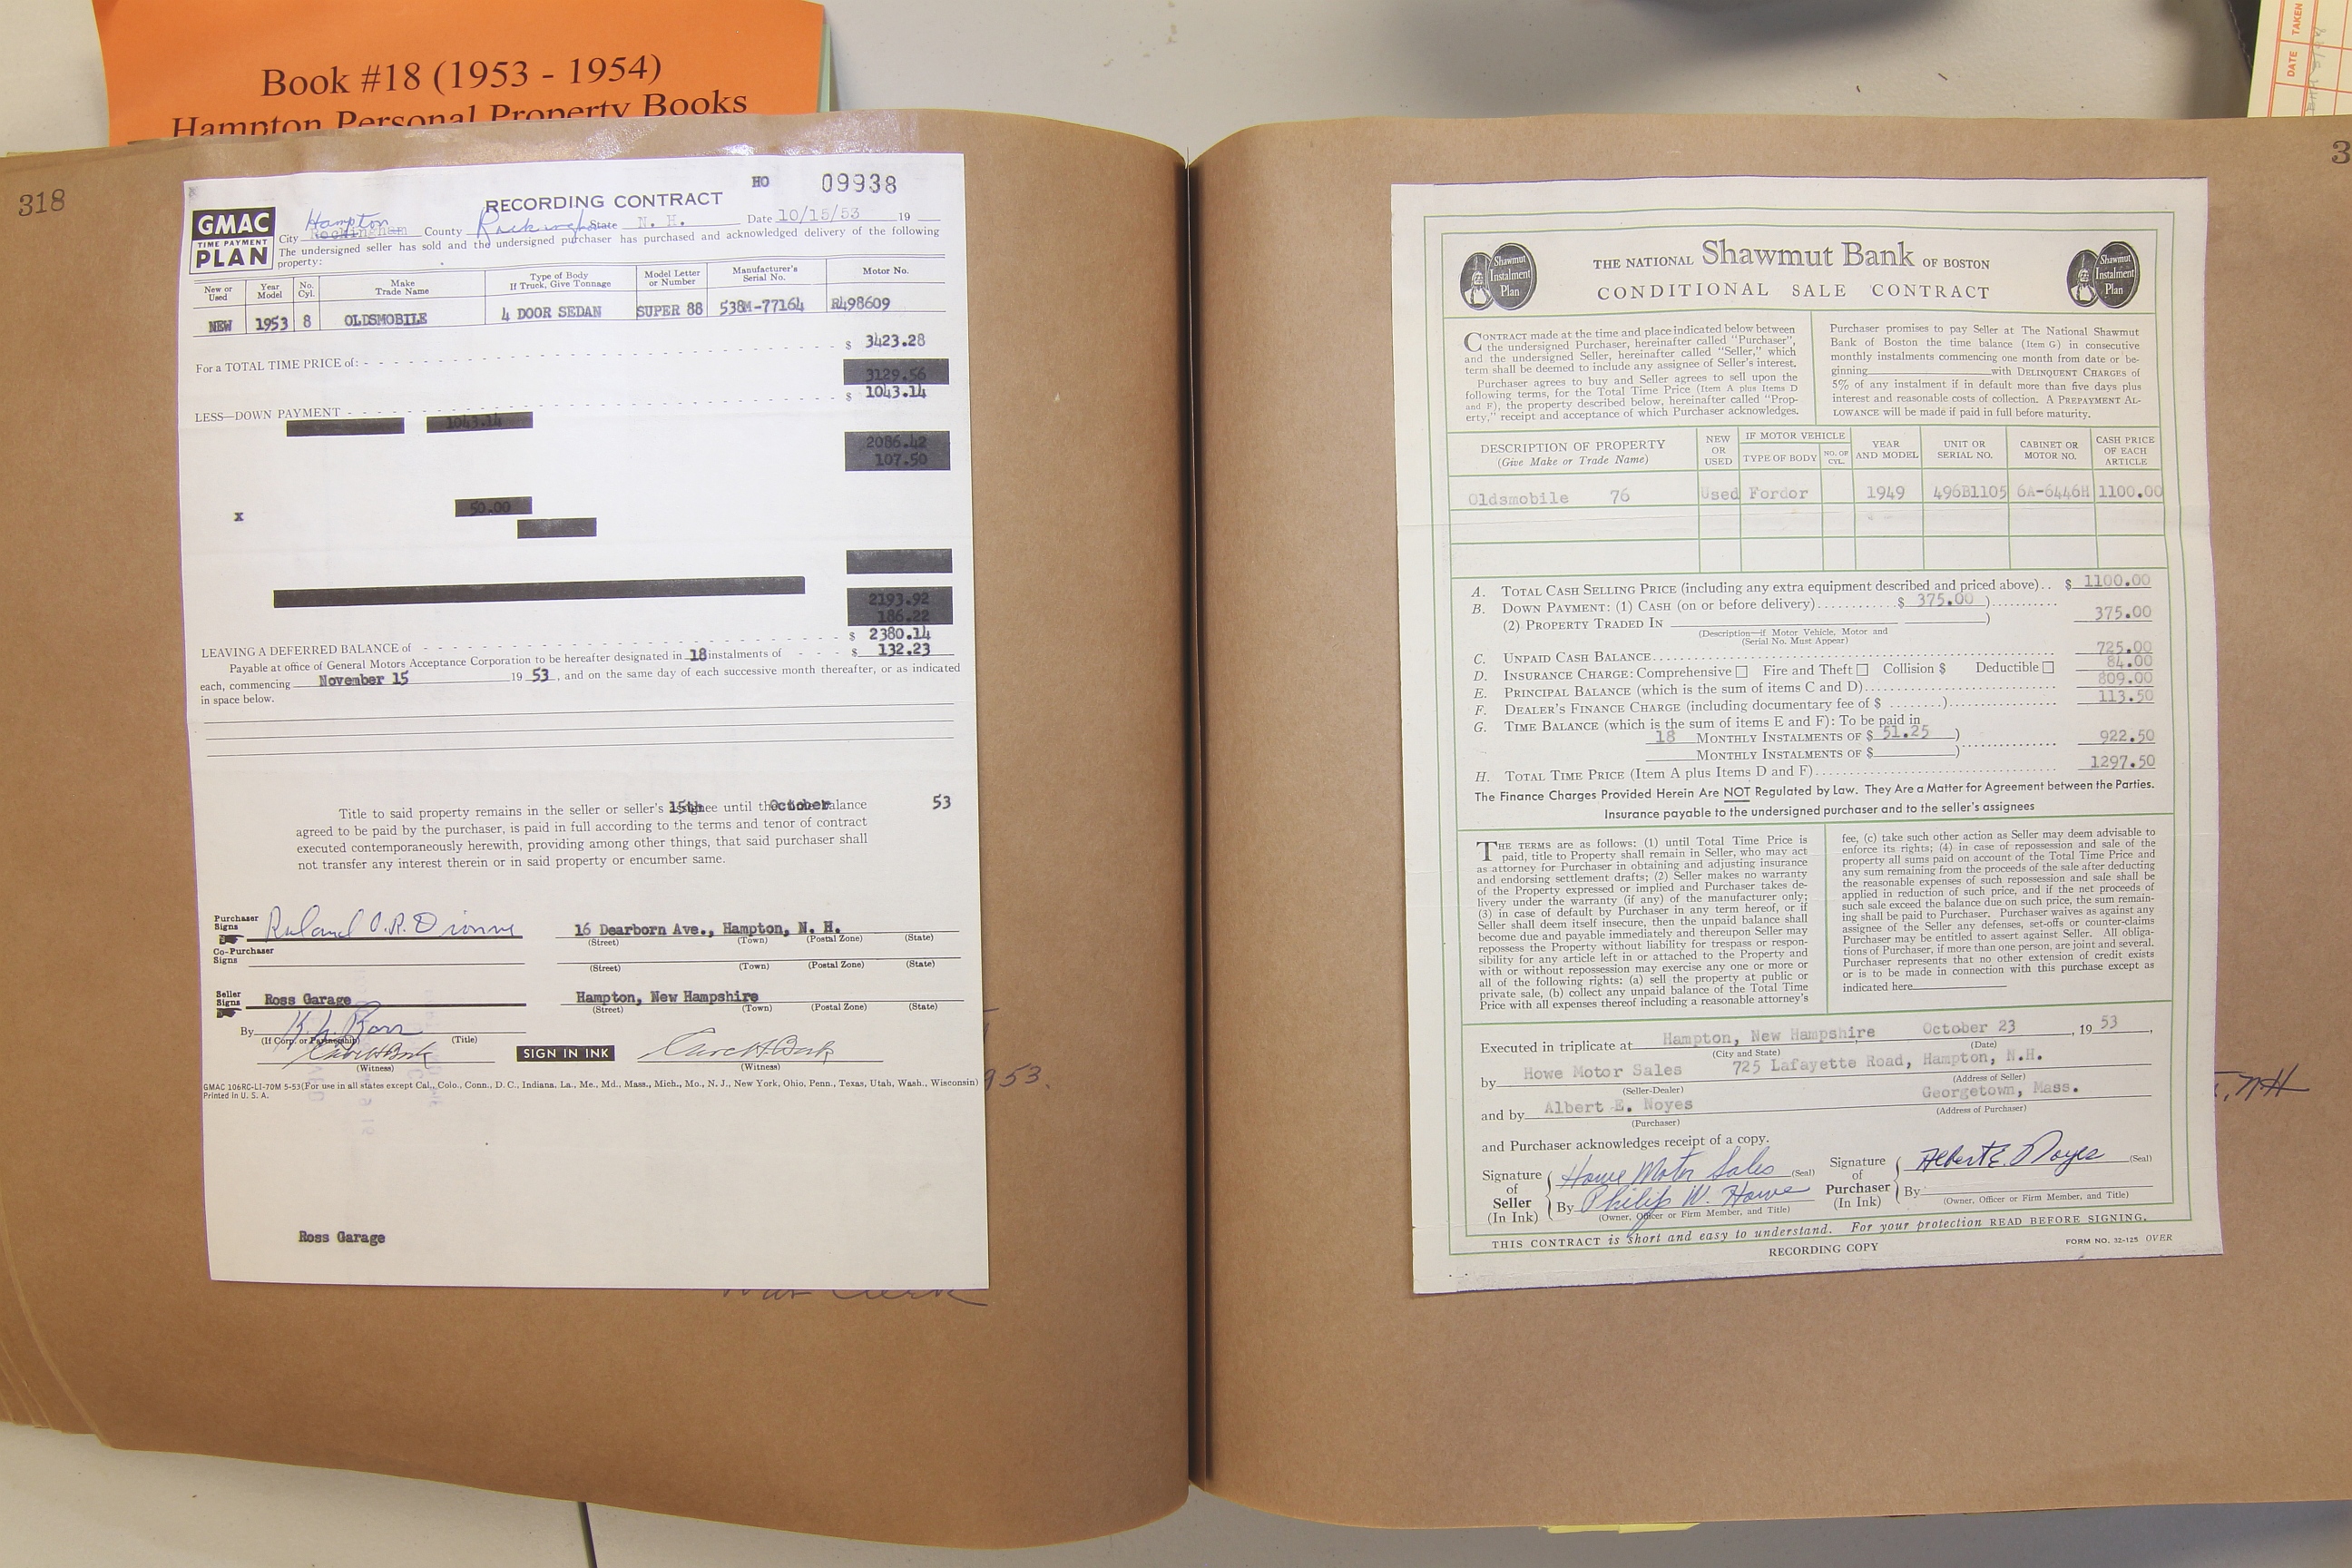 Book #18 (1953 - 1954)
Hampton Personal Property Books
DATE TAKEN
318
3
HO 09938
RECORDING CONTRACT
GMAC
TIME PAYMENT
PLAN
Hampton
City Rockingham County Rockingham State N. H. Date 10/15/53 19
The undersigned seller has sold and the undersigned purchaser has purchased and acknowledged delivery of the following
property:
New or Used Year Model No. Cyl. Make Trade Name Type of Body If Truck, Give Tonnage Model Letter or Number Manufacturer's Serial No. Motor No.
NEW 1953 8 OLDSMOBILE 4 DOOR SEDAN SUPER 88 538M-77164 R498609
For a TOTAL TIME PRICE of: $ 3423.28
3129.56
LESS—DOWN PAYMENT $ 1043.14
1043.14
2086.42
107.50
50.00
x
2193.92
186.22
LEAVING A DEFERRED BALANCE of $ 2380.14
Payable at office of General Motors Acceptance Corporation to be hereafter designated in 18 instalments of $ 132.23
each, commencing November 15 19 53, and on the same day of each successive month thereafter, or as indicated
in space below.
Title to said property remains in the seller or seller's 15th until the October balance 53
agreed to be paid by the purchaser, is paid in full according to the terms and tenor of contract
executed contemporaneously herewith, providing among other things, that said purchaser shall
not transfer any interest therein or in said property or encumber same.
Purchaser Signs Roland O.R. Dionne 16 Dearborn Ave., Hampton, N. H.
(Street) (Town) (Postal Zone) (State)
Co-Purchaser Signs
(Street) (Town) (Postal Zone) (State)
Seller Signs Ross Garage Hampton, New Hampshire
(Street) (Town) (Postal Zone) (State)
By K. L. Ross
(If Corp. or Partnership) (Title)
SIGN IN INK
(Witness) (Witness)
GMAC 106RC-LI-70M 5-53 (For use in all states except Cal., Colo., Conn., D. C., Indiana, La., Me., Md., Mass., Mich., Mo., N. J., New York, Ohio, Penn., Texas, Utah, Wash., Wisconsin)
Printed in U. S. A.
953.
Ross Garage
Clerk
Shawmut Instalment Plan
THE NATIONAL Shawmut Bank OF BOSTON
CONDITIONAL SALE CONTRACT
Shawmut Instalment Plan
CONTRACT made at the time and place indicated below between
the undersigned Purchaser, hereinafter called "Purchaser",
and the undersigned Seller, hereinafter called "Seller," which
term shall be deemed to include any assignee of Seller's interest.
Purchaser agrees to buy and Seller agrees to sell upon the
following terms, for the Total Time Price (Item A plus Items D
and F), the property described below, hereinafter called "Prop-
erty," receipt and acceptance of which Purchaser acknowledges.
Purchaser promises to pay Seller at The National Shawmut
Bank of Boston the time balance (Item G) in consecutive
monthly instalments commencing one month from date or be-
ginning with DELINQUENT CHARGES of
5% of any instalment if in default more than five days plus
interest and reasonable costs of collection. A PREPAYMENT AL-
LOWANCE will be made if paid in full before maturity.
DESCRIPTION OF PROPERTY (Give Make or Trade Name) NEW OR USED IF MOTOR VEHICLE TYPE OF BODY NO. OF CYL. YEAR AND MODEL UNIT OR SERIAL NO. CABINET OR MOTOR NO. CASH PRICE OF EACH ARTICLE
Oldsmobile 76 Used Fordor 1949 496B1105 6A-6446H 1100.00
A. TOTAL CASH SELLING PRICE (including any extra equipment described and priced above).. $ 1100.00
B. DOWN PAYMENT: (1) CASH (on or before delivery) $ 375.00 )
(2) PROPERTY TRADED IN ) 375.00
(Description—if Motor Vehicle, Motor and
(Serial No. Must Appear)
C. UNPAID CASH BALANCE 725.00
D. INSURANCE CHARGE: Comprehensive Fire and Theft Collision $ Deductible 84.00
E. PRINCIPAL BALANCE (which is the sum of items C and D) 809.00
F. DEALER'S FINANCE CHARGE (including documentary fee of $ ) 113.50
G. TIME BALANCE (which is the sum of items E and F): To be paid in
18 MONTHLY INSTALMENTS OF $ 51.25 )
MONTHLY INSTALMENTS OF $ ) 922.50
H. TOTAL TIME PRICE (Item A plus Items D and F) 1297.50
The Finance Charges Provided Herein Are NOT Regulated by Law. They Are a Matter for Agreement between the Parties.
Insurance payable to the undersigned purchaser and to the seller's assignees
THE TERMS are as follows: (1) until Total Time Price is
paid, title to Property shall remain in Seller, who may act
as attorney for Purchaser in obtaining and adjusting insurance
and endorsing settlement drafts; (2) Seller makes no warranty
of the Property expressed or implied and Purchaser takes de-
livery under the warranty (if any) of the manufacturer only;
(3) in case of default by Purchaser in any term hereof, or if
Seller shall deem itself insecure, then the unpaid balance shall
become due and payable immediately and thereupon Seller may
repossess the Property without liability for trespass or respon-
sibility for any article left in or attached to the Property and
with or without repossession may exercise any one or more or
all of the following rights: (a) sell the property at public or
private sale, (b) collect any unpaid balance of the Total Time
Price with all expenses thereof including a reasonable attorney's
fee, (c) take such other action as Seller may deem advisable to
enforce its rights; (4) in case of repossession and sale of the
property all sums paid on account of the Total Time Price and
any sum remaining from the proceeds of the sale after deducting
the reasonable expenses of such repossession and sale shall be
applied in reduction of such price, and if the net proceeds of
such sale exceed the balance due on such price, the sum remain-
ing shall be paid to Purchaser. Purchaser waives as against any
assignee of the Seller any defenses, set-offs or counter-claims
Purchaser may be entitled to assert against Seller. All obliga-
tions of Purchaser, if more than one person, are joint and several.
Purchaser represents that no other extension of credit exists
or is to be made in connection with this purchase except as
indicated here
Executed in triplicate at Hampton, New Hampshire October 23, 19 53,
(City and State) (Date)
by Howe Motor Sales 725 Lafayette Road, Hampton, N.H.
(Seller-Dealer) (Address of Seller)
and by Albert E. Noyes Georgetown, Mass.
(Purchaser) (Address of Purchaser)
and Purchaser acknowledges receipt of a copy.
Signature of Seller (In Ink) Howe Motor Sales (Seal)
By Philip W. Howe
(Owner, Officer or Firm Member, and Title)
Signature of Purchaser (In Ink) Albert E. Noyes (Seal)
By
(Owner, Officer or Firm Member, and Title)
THIS CONTRACT is short and easy to understand. For your protection READ BEFORE SIGNING.
RECORDING COPY
FORM NO. 32-125 OVER
NH